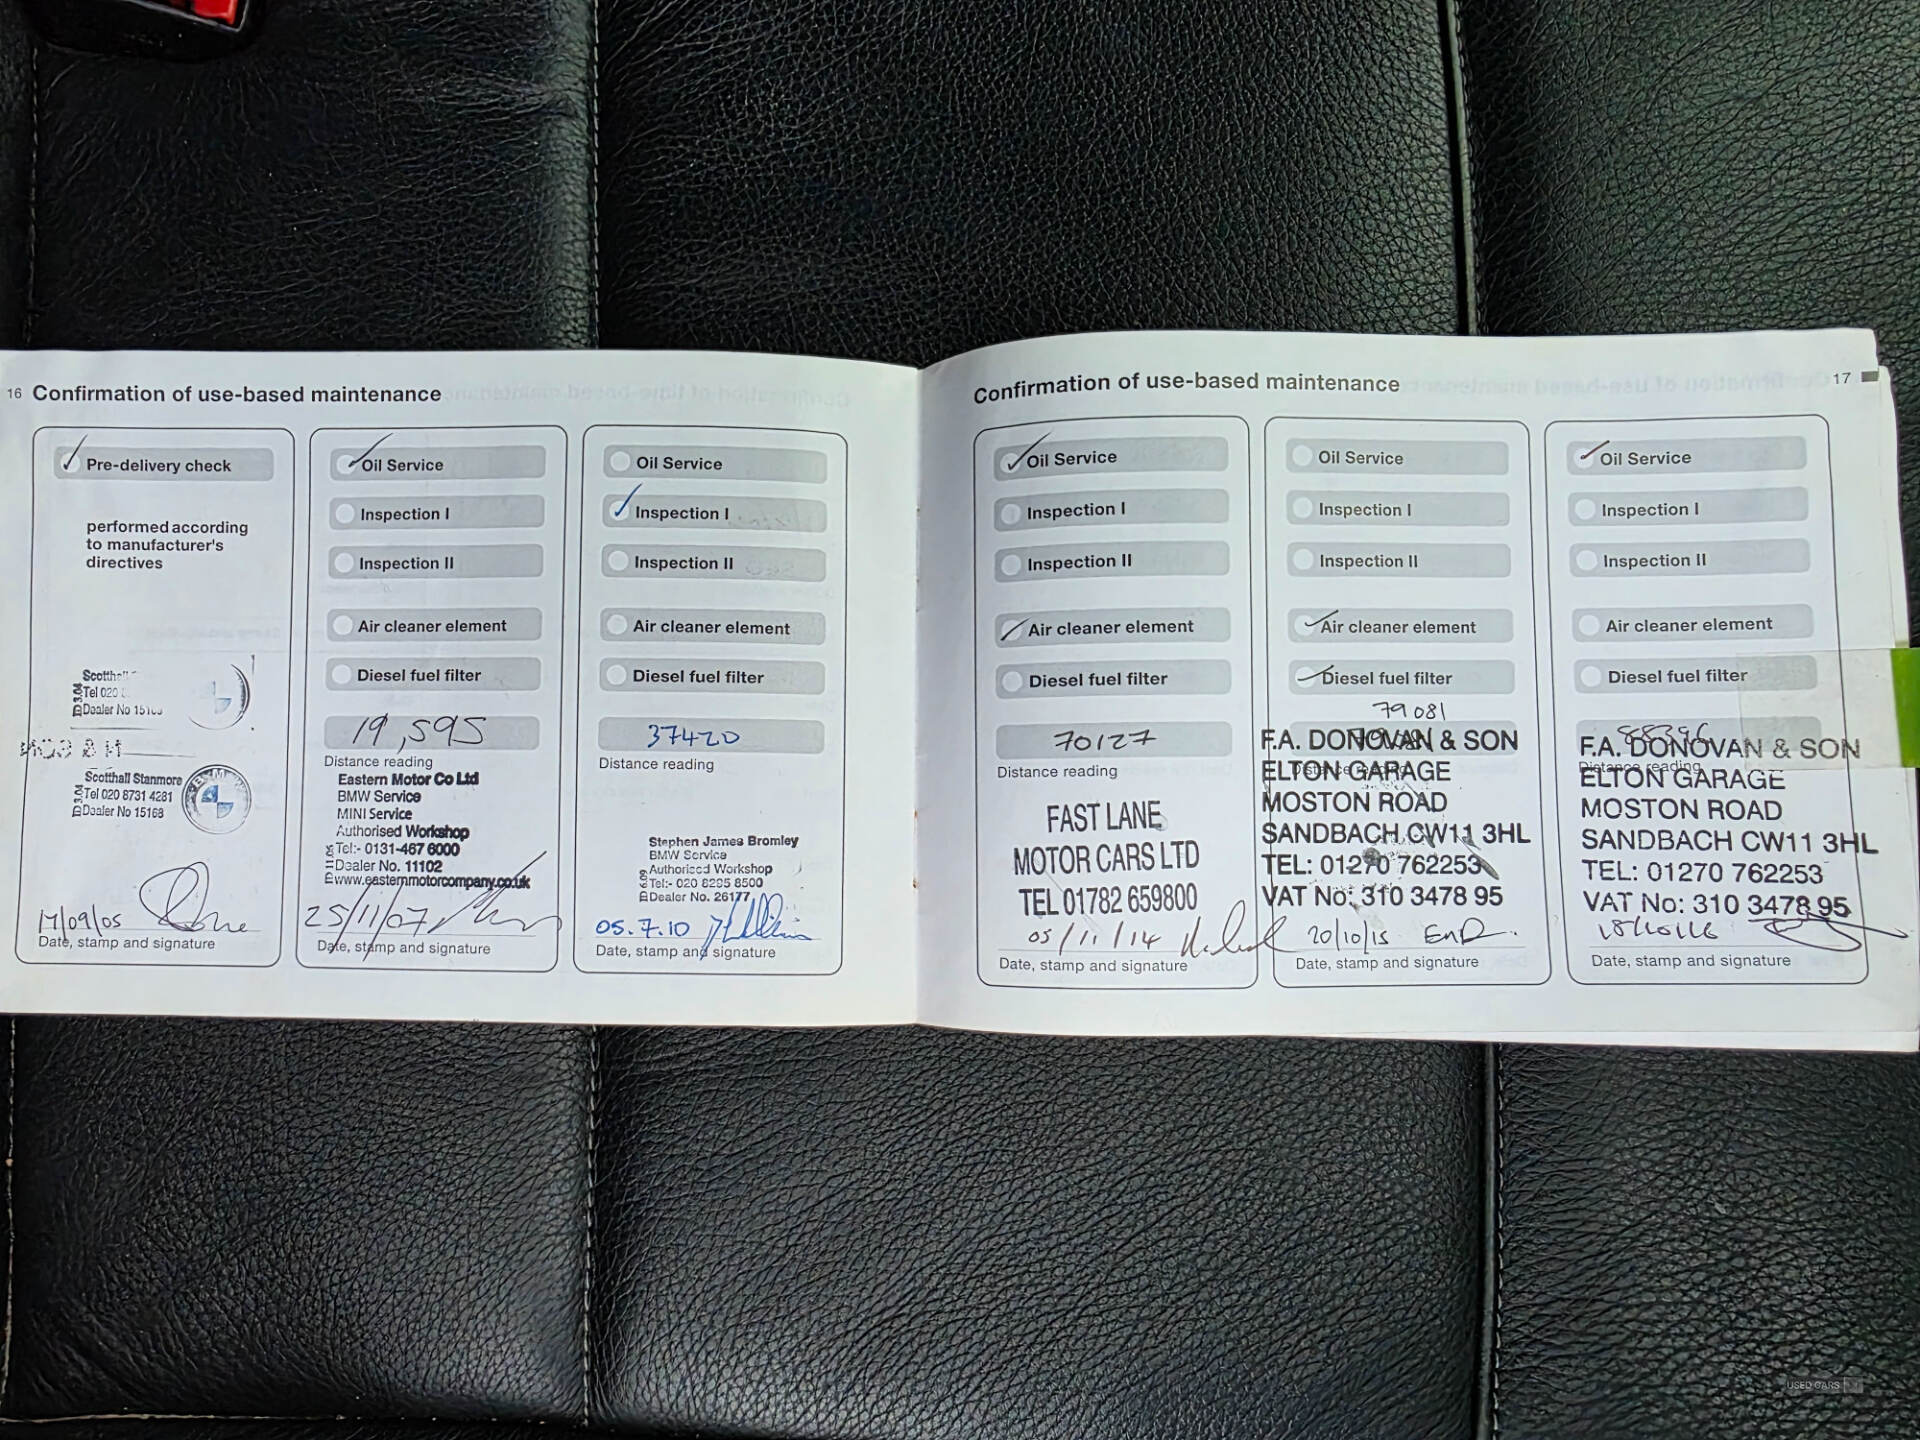 16 Confirmation of use-based maintenance
Pre-delivery check
performed according
to manufacturer's
directives
Scotthall
Tel 020
Dealer No
Scotthall Stanmore
Tel 020 8731 4281
Dealer No 15168
17/09/05
Date, stamp and signature
Oil Service
Inspection I
Inspection II
Air cleaner element
Diesel fuel filter
19,595
Distance reading
Eastern Motor Co Ltd
BMW Service
MINI Service
Authorised Workshop
Tel:- 0131-467 6000
Dealer No. 11102
www.easternmotorcompany.co.uk
25/11/07
Date, stamp and signature
Oil Service
Inspection I
Inspection II
Air cleaner element
Diesel fuel filter
37420
Distance reading
Stephen James Bromley
BMW Service
Authorised Workshop
Tel:- 020 8295 8500
Dealer No. 26177
05.7.10
Date, stamp and signature
Confirmation of use-based maintenance 17
Oil Service
Inspection I
Inspection II
Air cleaner element
Diesel fuel filter
70127
Distance reading
FAST LANE
MOTOR CARS LTD
TEL 01782 659800
05/11/14
Date, stamp and signature
Oil Service
Inspection I
Inspection II
Air cleaner element
Diesel fuel filter
79081
F.A. DONOVAN & SON
Distance reading
ELTON GARAGE
MOSTON ROAD
SANDBACH CW11 3HL
TEL: 01270 762253
VAT No: 310 3478 95
20/10/15
Date, stamp and signature
Oil Service
Inspection I
Inspection II
Air cleaner element
Diesel fuel filter
88396
F.A. DONOVAN & SON
Distance reading
ELTON GARAGE
MOSTON ROAD
SANDBACH CW11 3HL
TEL: 01270 762253
VAT No: 310 3478 95
18/10/16
Date, stamp and signature
USED CARS NI